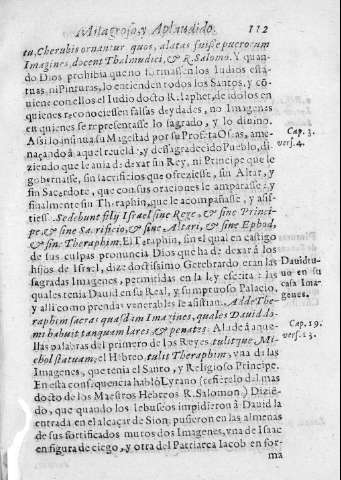 Milagroso, y Aplaudido. 112
tu, Cherubis ornantur quos, alatas fuisse puerorum
Imagines, docent Thalmudici, & R. Salomo. Y quan-
do Dios prohibia que no formassen los Iudios esta-
tuas, ni Pinturas, lo entienden todos los Santos, y cõ-
uiene con ellos el Iudio docto R. Iaphet, de idolos en
quienes reconociessen falsas deydades, no Imagenes
en quienes se representasse lo sagrado, y lo diuino.
Assi lo insinua su Magestad por su Profeta Oseas, ame-
naçando à aquel reueld: y desagradecido Pueblo, di-
ziendo que le auia de dexar sin Rey, ni Principe que le
gobernasse, sin sacrificios que ofreziesse, sin Altar, y
sin Sacerdote, que con sus oraciones le amparasse: y
finalmente sin Theraphin, que le acompañasse, y asis-
tiess. Sedebunt filij Israel sine Rege, & sine Princi-
pe, & sine Sacrificio, & sine Altari, & sine Ephod,
& sine Theraphim. El Teraphin, sin el qual en castigo
de sus culpas pronuncia Dios que ha de dexar à los
hijos de Israel, dize doctissimo Gerebrardo eran las
sagradas Imagenes, permitidas en la ley escrita: las
quales tenia Dauid en su Real, y sumptuoso Palacio,
y alli como prendas venerables le asistian. Adde The-
raphim sacras quasdam Imagines, quales Dauid do-
mi habuit tanquam lares, & penates. Alude à aque-
llas palabras del primero de los Reyes: tulitque Mi-
chol statuam: el Hebreo, tulit Theraphim, vna de las
Imagenes, que tenia el Santo, y Religioso Principe.
En esta consequencia hablò Lyrano (refierelo del mas
docto de los Maestros Hebreos R. Salomon.) Dizië-
do, que quando los Iebuseos impidieron à Dauid la
entrada en el alcaçar de Sion, pusieron en las almenas
de sus fortificados muros dos Imagenes, vna de Isaac
en figura de ciego, y otra del Patriarca Iacob en for-
ma
Cap. 3.
vers. 4.
Dauid tu-
uo en su
casa Ima-
genes.
Cap. 19.
vers. 13.